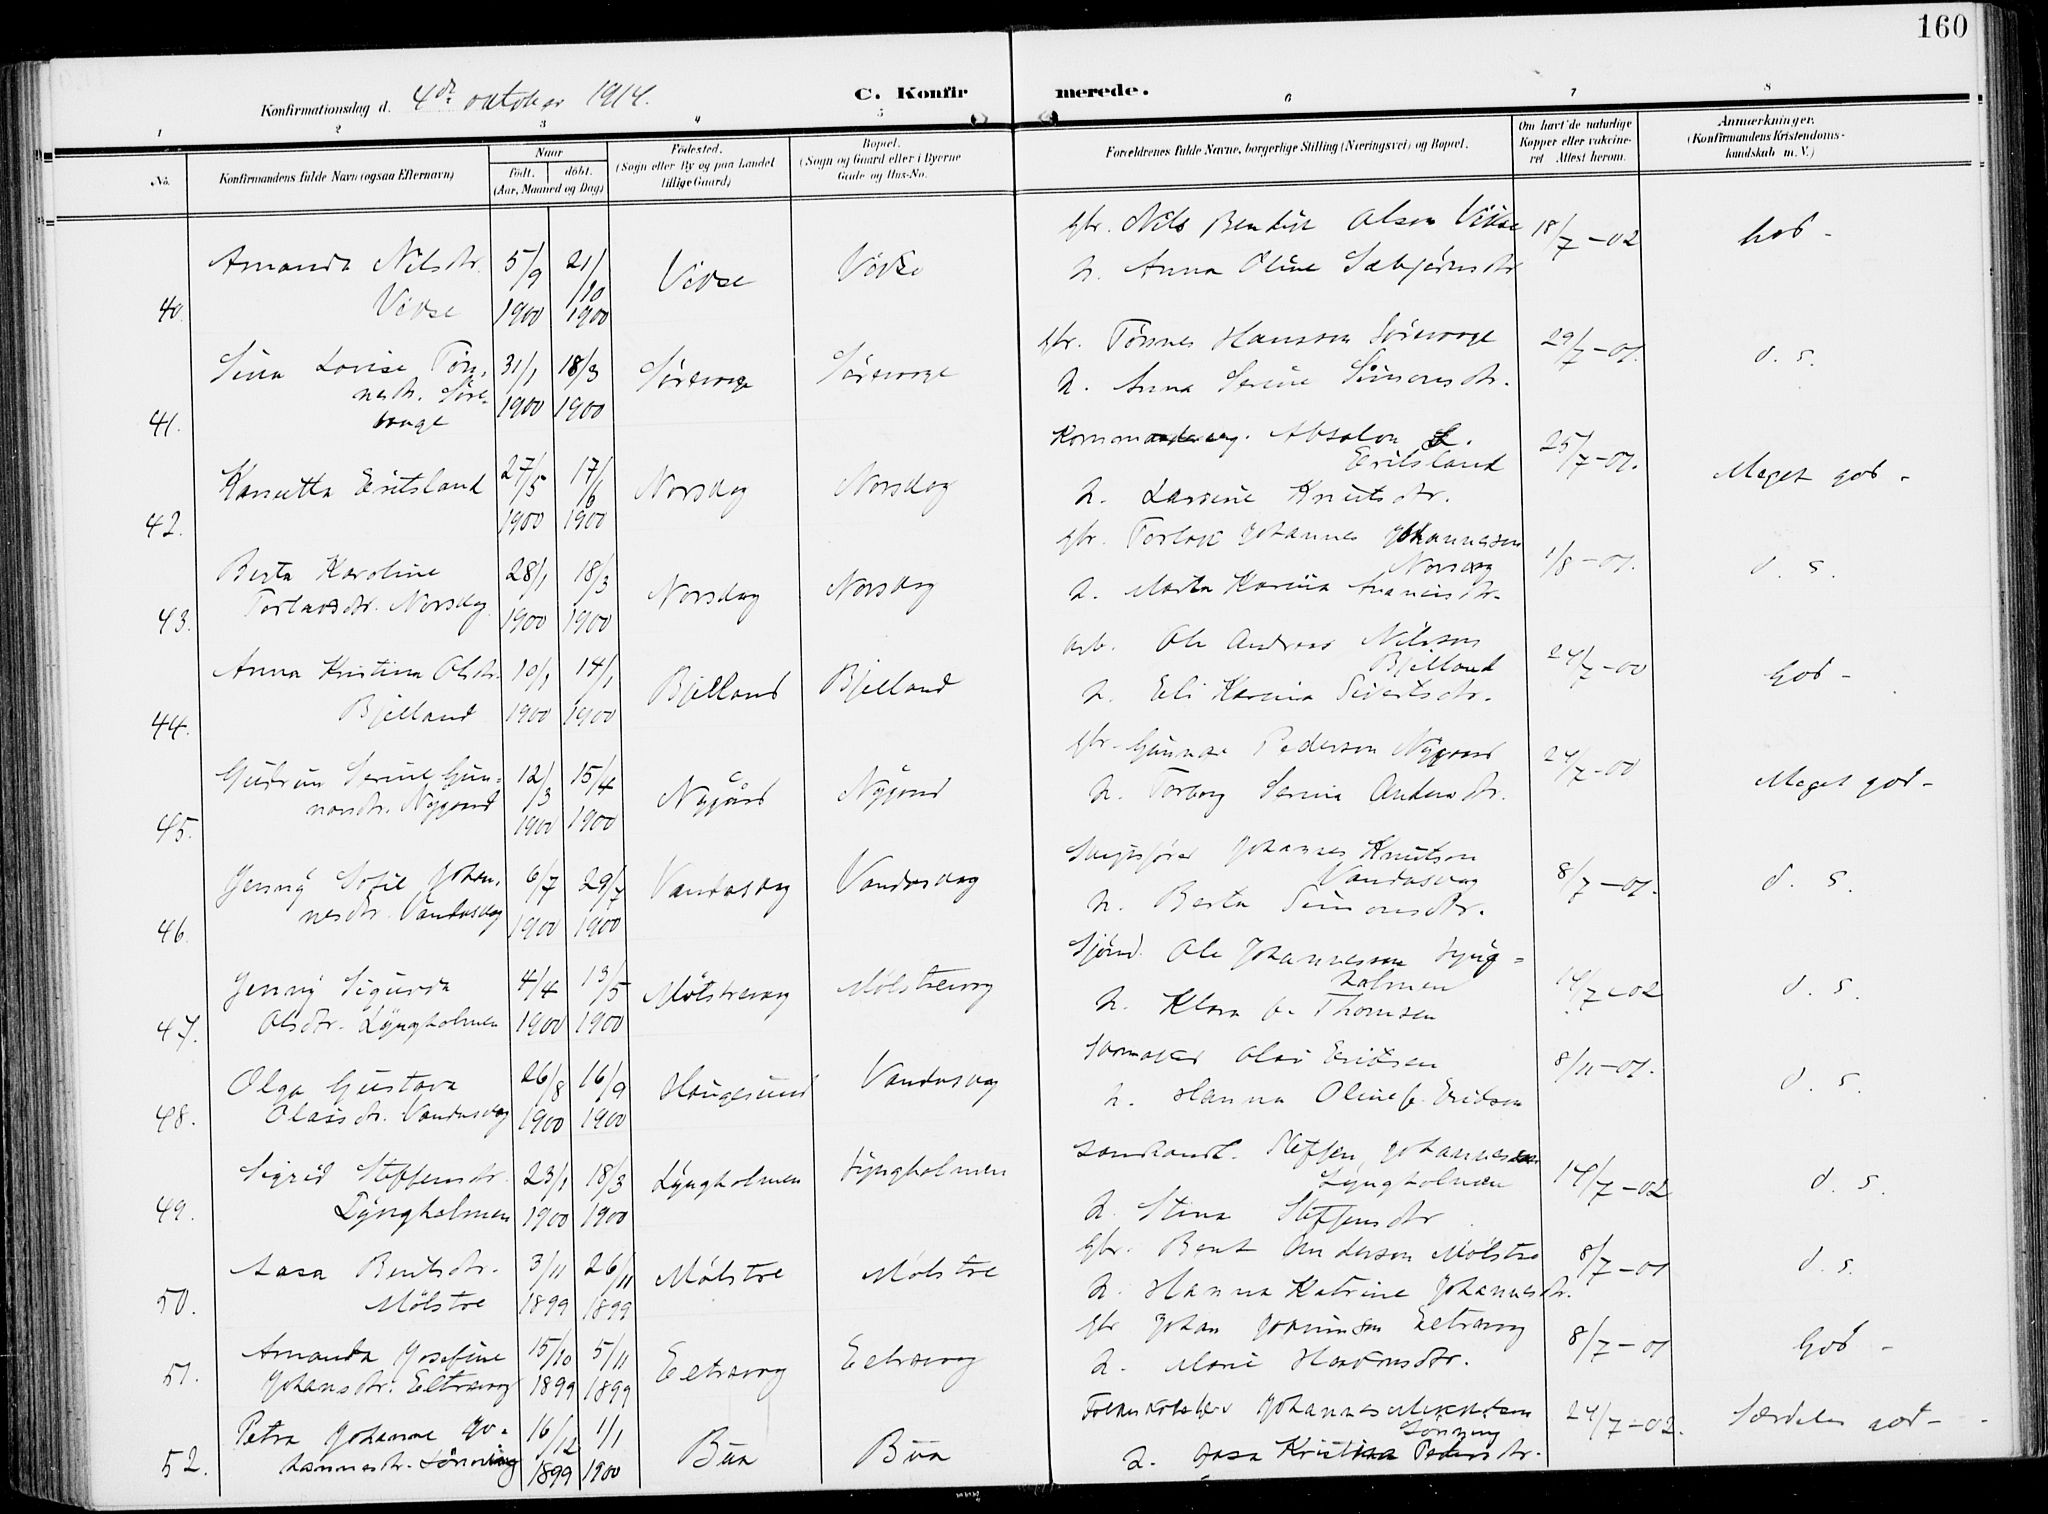 160
Konfirmationsdag d. 4de oktober 1914.
C. Konfirmerede.
1 2 3 4 5 6 7 8
No.
Konfirmandens fulde Navn (ogsaa Efternavn)
Naar
født. døbt.
(Aar, Maaned og Dag)
Fødested.
(Sogn eller By og paa Landet
tillige Gaard)
Bopæl.
(Sogn og Gaard eller i Byerne
Gade og Hus-No.
Forældrenes fulde Navne, borgerlige Stilling (Næringsvei) og Bopæl.
Om havt de naturlige
Kopper eller vakcine-
ret Attest herom.
Anmærkninger.
(Konfirmandens Kristendoms-
kundskab m. V.)
gbr. Nils Bendik Olsen Vikse 18/7-02 God -
Amanda Nilsdtr. 5/9 21/10 Vikse Vikse
h. Anna Oline Sæbjørnsdtr
40. Vikse 1900 1900
gbr. Tønnes Hansson Sørevaage 29/7-01.
Sina Lovise Tøn- 31/1 18/3 Sørevaage Sørevaage d. s.
nesdtr. Søre- 1900 1900 h. Anna Serine Simonsdtr.
41. vaage
Absalon 25/7-01.
Eritsland
Eritsland 27/5 17/6 Norsdog Norsdog Meget god -
h. Knutsdtr.
42. 1900 1900
gbr. Torlak Johannes Johannessen
Norsdog 1/8-01.
Berta Karoline 28/1 18/3 Norsdog Norsdog d. s.
43. Torlaksdtr. Norsdog 1900 1900 h. Marta Karina
arb. Ole Andreas Nilsson
Bjelland 24/7-00
Anna Kristina Olsdtr. 10/1 14/1 Bjelland Bjelland God -
h. Eli Karina Sivertsdtr.
44. Bjelland 1900 1900
gbr. Gunnar Pederson Nygaard 24/7-00
Gudrun Serine Gun- 12/3 15/4 Nygård Nygaard Meget god -
narsdtr. Nygaard h. Torborg Serina Andersdtr.
45. 1900 1900
Johannes Knutson
Vandasvag 8/7-01.
Jenny Sofie Johan- 6/7 29/7 Vandasvag Vandasvag d. s.
nesdtr. Vandasvag h. Berta Simonsdtr.
46. 1900 1900
Sjømd. Ole Johannessen Lyng-
holmen 14/7-02
Jenny Sigurda 4/4 13/5 Mølstrevag Mølstrevag d. s.
h. Klara f. Thomsen
47. Olsdtr. Lyngholmen 1900 1900
Skomaker Olai Eriksen 8/11-01.
Olga Gustava 26/8 16/9 Haugesund Vandasvag d. s.
h. Hanna Oline f. Eridsen
48. Olaisdtr. Vandasvag 1900 1900
Landhandl. Steffen Johannessen
Lyngholmen 14/7-02
Sigrid Steffensdtr. 23/1 18/3 Lyngholmen Lyngholmen d. s.
49. Lyngholmen 1900 1900 h. Stina Steffensdtr
gbr. Bent Anderson Mølstre 8/7-01
Aasa Bentsdtr. 3/11 26/11 Mølstre Mølstre d. s.
50. Mølstre 1899 1899 h. Hanna Katrine Johannesdtr.
gbr Johan Eltravag 8/7-01
Amanda Josefine 15/10 5/11 Eltravag Eltravag God -
51. Johansdtr. Eltravag 1899 1899 h. Marie Haakonsdtr.
Johannes
Lønning 24/7-02.
Petra Johanne Jo- 16/12 1/1 Bua Bua Særdeles god -
52. hannesdtr. Lønning 1899 1900 h. Aasa Kristina Pedersdtr.